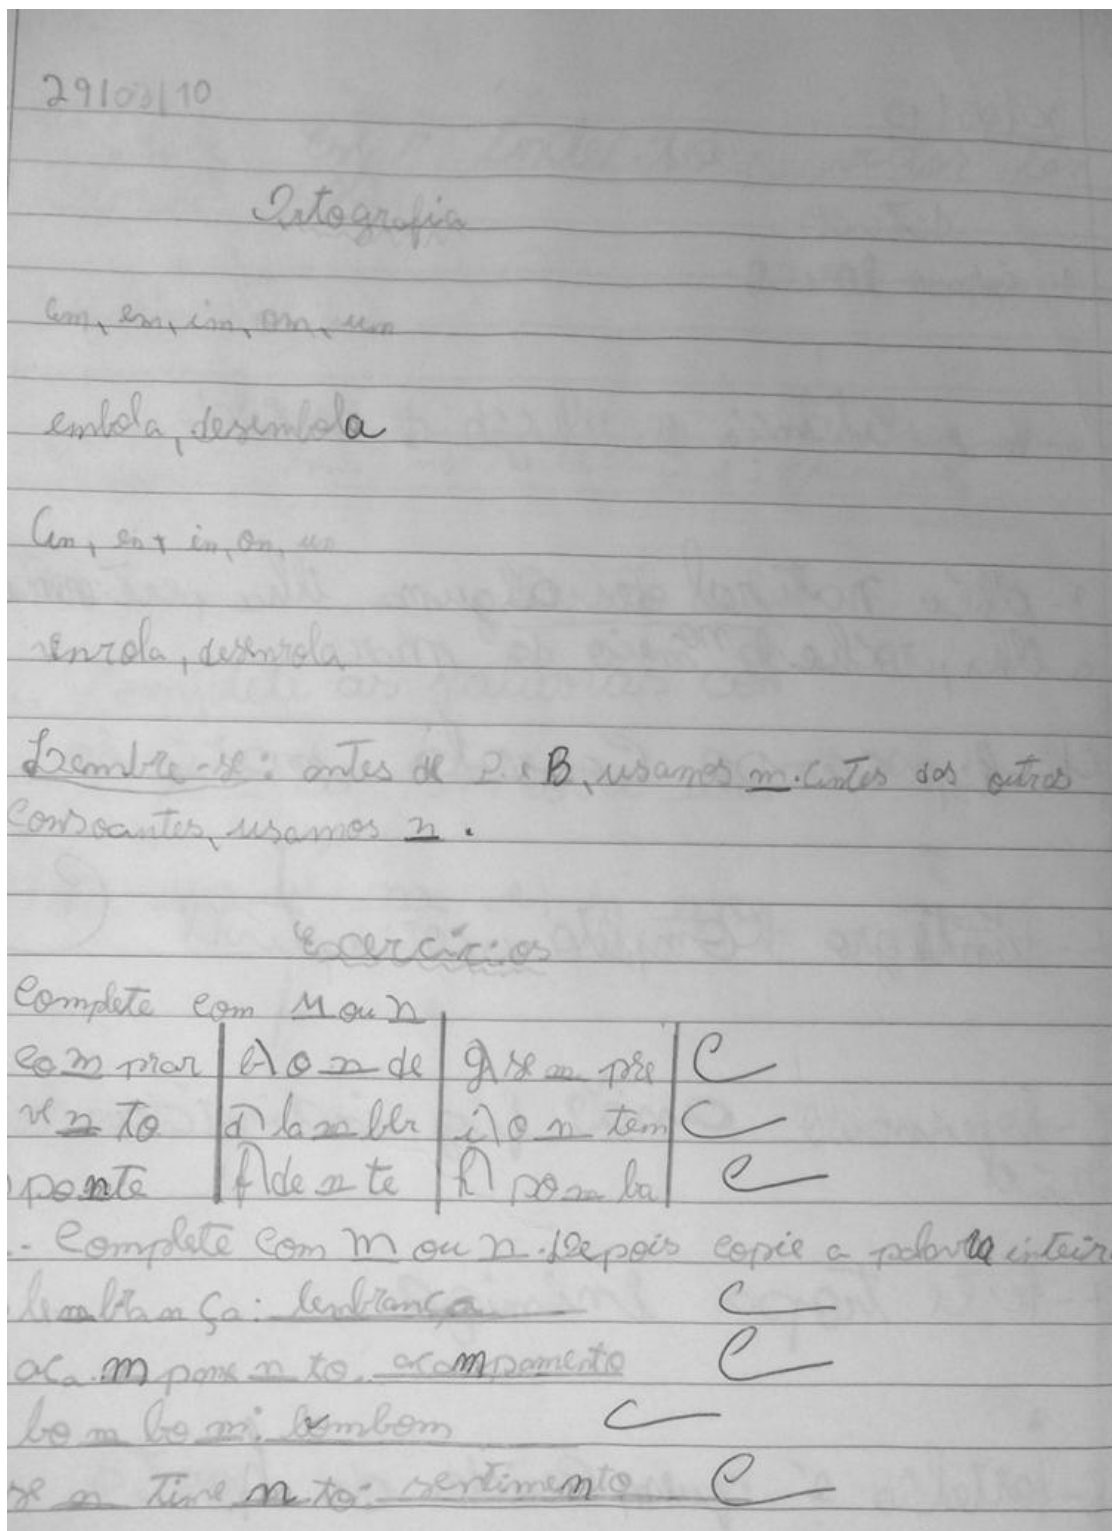 29/03/10
Ortografia
am, em, im, om, um
embola, desembola
An, en, in, on, un
enrola, desenrola
Lembre-se: antes de P e B, usamos m. Antes das outras
consoantes, usamos n.
Exercícios
Complete com M ou N
com prar e) o n de g) se m pre C
ve n to d) la m ber i) o n tem C
ponte f) de n te h) po m ba C
- Complete com m ou n. Depois copie a palavra inteira
lembrança: lembrança C
aca m pame n to. acampamento C
bo m bo m: bombom C
se n time n to: sentimento C